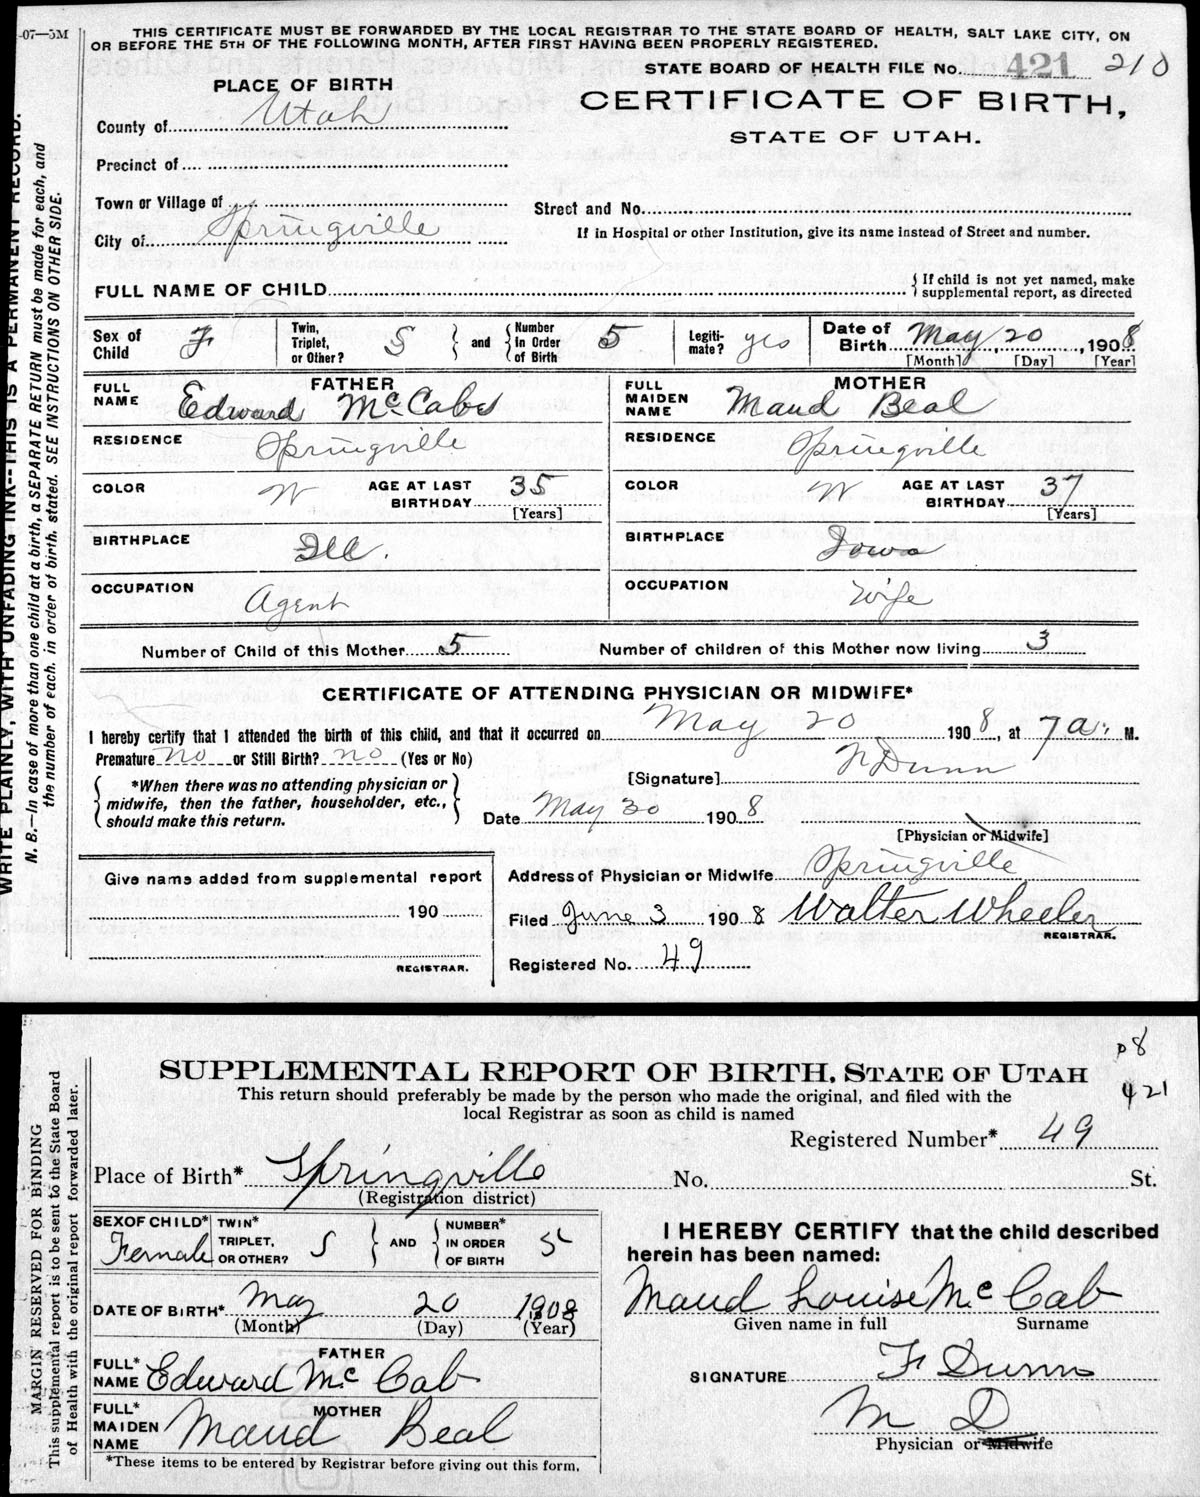 -07—5M
THIS CERTIFICATE MUST BE FORWARDED BY THE LOCAL REGISTRAR TO THE STATE BOARD OF HEALTH, SALT LAKE CITY, ON
OR BEFORE THE 5TH OF THE FOLLOWING MONTH, AFTER FIRST HAVING BEEN PROPERLY REGISTERED.
STATE BOARD OF HEALTH FILE No. 421 210
PLACE OF BIRTH
CERTIFICATE OF BIRTH,
STATE OF UTAH.
County of Utah
Precinct of
Town or Village of
City of Springville
Street and No.
If in Hospital or other Institution, give its name instead of Street and number.
FULL NAME OF CHILD
If child is not yet named, make
supplemental report, as directed
Sex of Child F
Twin, Triplet, or Other? S and Number in Order of Birth 5
Legitimate? yes
Date of Birth May 20, 1908
[Month] [Day] [Year]
FATHER
FULL NAME Edward McCabe
RESIDENCE Springville
COLOR W AGE AT LAST BIRTHDAY 35
[Years]
BIRTHPLACE Ill.
OCCUPATION Agent
MOTHER
FULL MAIDEN NAME Maud Beal
RESIDENCE Springville
COLOR W AGE AT LAST BIRTHDAY 37
[Years]
BIRTHPLACE Iowa
OCCUPATION Wife
Number of Child of this Mother 5 Number of children of this Mother now living 3
CERTIFICATE OF ATTENDING PHYSICIAN OR MIDWIFE*
I hereby certify that I attended the birth of this child, and that it occurred on May 20 1908, at 7 a. M.
Premature no or Still Birth? no (Yes or No)
*When there was no attending physician or
midwife, then the father, householder, etc.,
should make this return.
[Signature] Dunn
Date May 30 1908
[Physician or Midwife]
Address of Physician or Midwife Springville
Filed June 3 1908 Walter Wheeler
REGISTRAR.
Registered No. 49
Give name added from supplemental report
190
REGISTRAR.
WRITE PLAINLY, WITH UNFADING INK--THIS IS A PERMANENT RECORD.
N. B.—In case of more than one child at a birth, a SEPARATE RETURN must be made for each, and
the number of each. in order of birth. stated. SEE INSTRUCTIONS ON OTHER SIDE.
08
421
SUPPLEMENTAL REPORT OF BIRTH, STATE OF UTAH
This return should preferably be made by the person who made the original, and filed with the
local Registrar as soon as child is named
Registered Number* 49
Place of Birth* Springville No. St.
(Registration district)
SEX OF CHILD* Female
TWIN* TRIPLET, OR OTHER? S AND NUMBER* IN ORDER OF BIRTH 5
DATE OF BIRTH* May 20 1908
(Month) (Day) (Year)
FATHER
FULL* NAME Edward McCab
MOTHER
FULL* MAIDEN NAME Maud Beal
*These items to be entered by Registrar before giving out this form,
I HEREBY CERTIFY that the child described
herein has been named:
Maud Louise McCab
Given name in full Surname
SIGNATURE F Dunn
M D
Physician or Midwife
MARGIN RESERVED FOR BINDING
This supplemental report is to be sent to the State Board
of Health with the original report forwarded later.